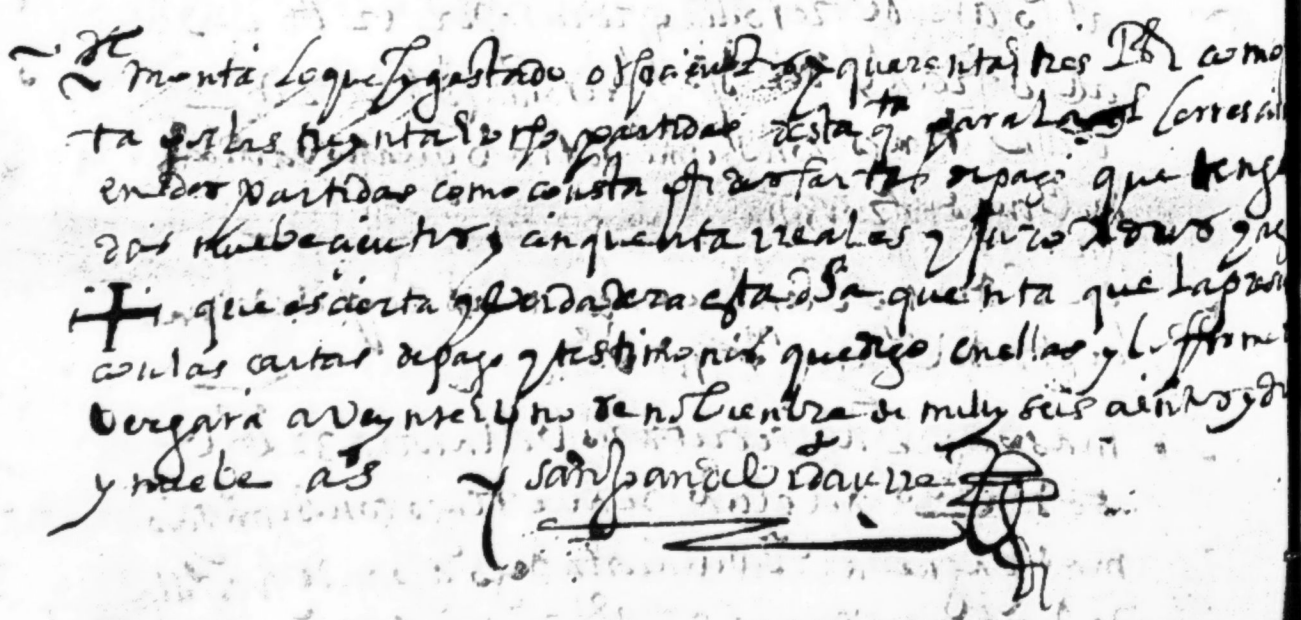 monta lo que y gastado ochocientos y quarenta y tres Rs como
ta por las treynta y ocho partidas desta qta para la
en dos partidas como consta por dos cartas de pago que teng
dos nuebecientos y cinquenta rreales y juro a dios y a
+ que es cierta y berdadera esta dha quenta que la pres
con las cartas de pago y testimonios que digo en ellas y lo ffirme
Vergara a Veynte y uno de nobienbre de mill y seis cientos y di
y nuebe as